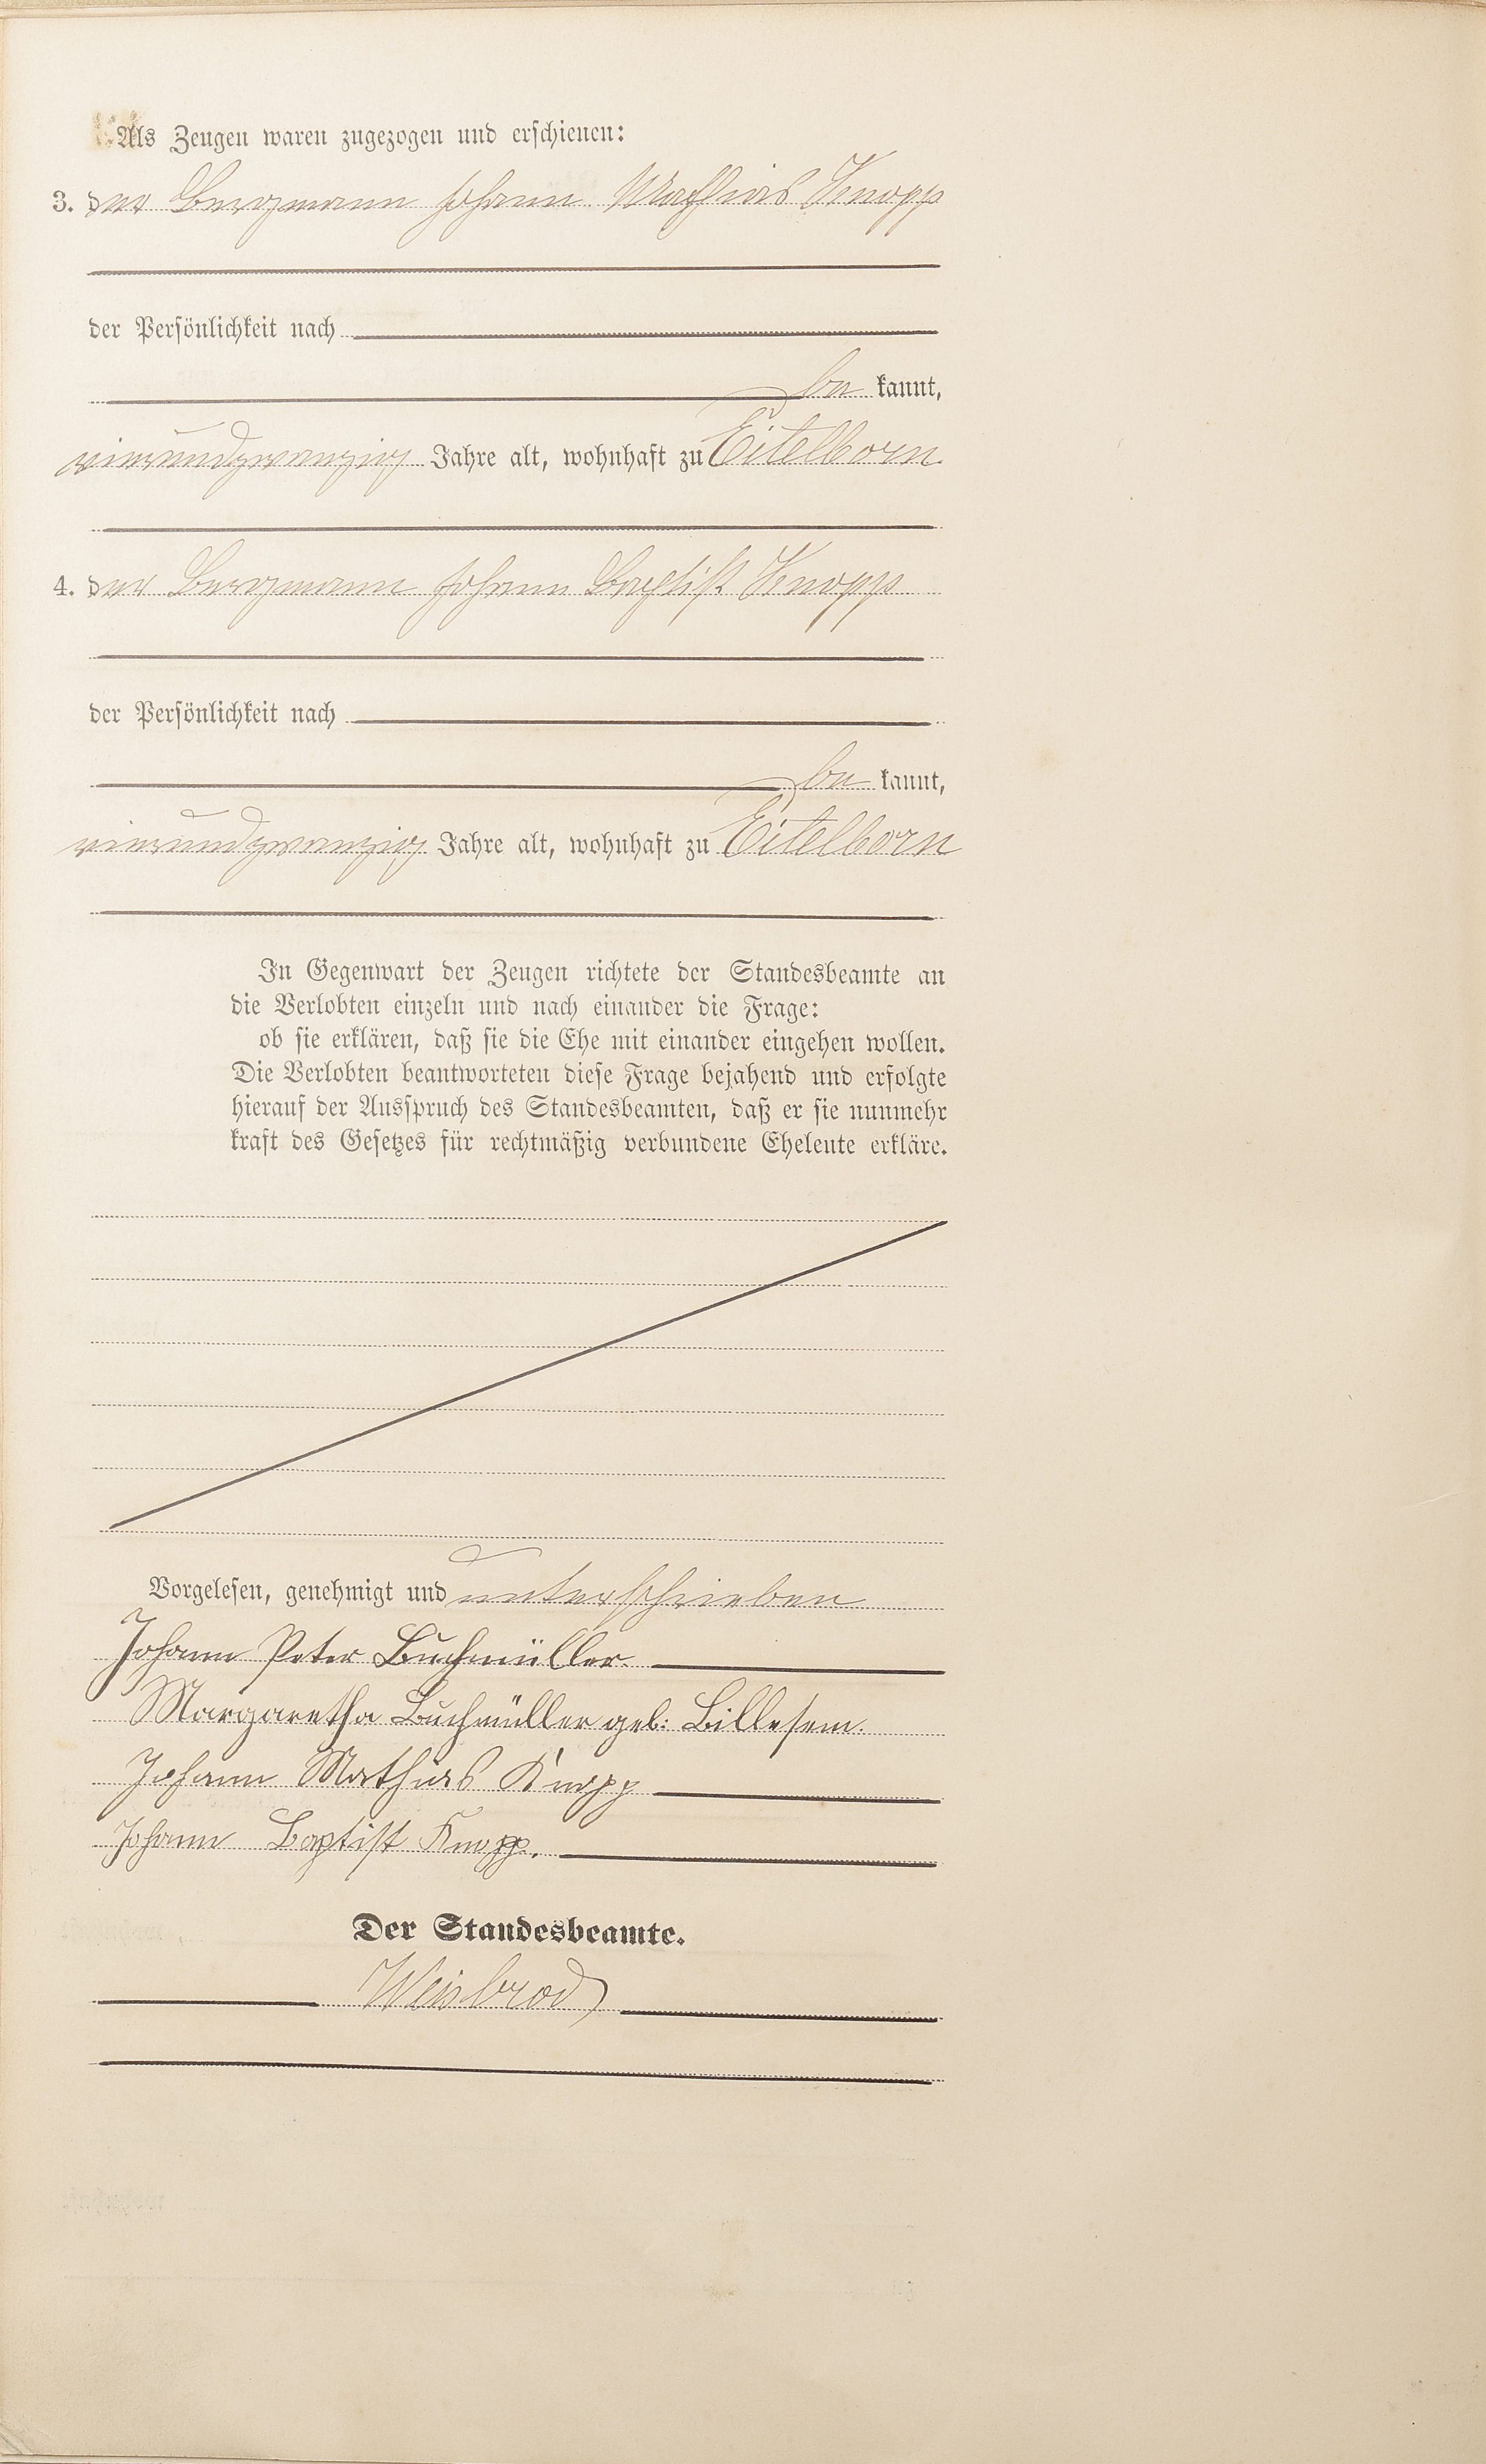 Als Zeugen waren zugezogen und erschienen:
3. der Bergmann Johann Mathias Knopp
der Persönlichkeit nach
be kannt,
vierundzwanzig Jahre alt, wohnhaft zu Eitelborn
4. der Bergmann Johann Baptist Knopp
der Persönlichkeit nach
be kannt,
vierundzwanzig Jahre alt, wohnhaft zu Eitelborn
In Gegenwart der Zeugen richtete der Standesbeamte an
die Verlobten einzeln und nach einander die Frage:
ob sie erklären, daß sie die Ehe mit einander eingehen wollen.
Die Verlobten beantworteten diese Frage bejahend und erfolgte
hierauf der Ausspruch des Standesbeamten, daß er sie nunmehr
kraft des Gesetzes für rechtmäßig verbundene Eheleute erkläre.
Vorgelesen, genehmigt und unterschrieben
Johann Peter Buchmüller
Margaretha Buchmüller geb: Billesem.
Johann Mathias Knopp
Johann Baptist Knopp.
Der Standesbeamte.
Weisbrod